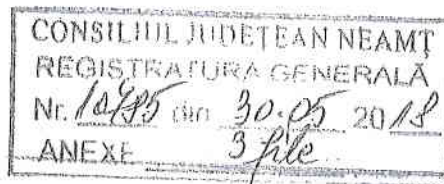 CONSILIUL JUDEȚEAN NEAMȚ
REGISTRATURA GENERALĂ
Nr. din 30.05 2018
ANEXE 3 file